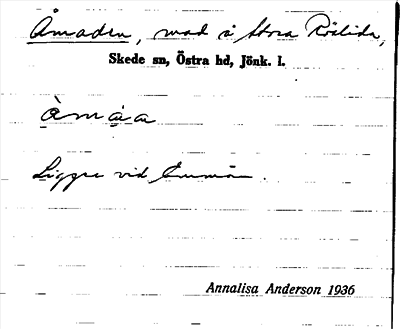 Åmaden, mad å Stora Röslida,
Skede sn, Östra hd, Jönk. l.
Ligger vid Emmån.
Annalisa Anderson 1936